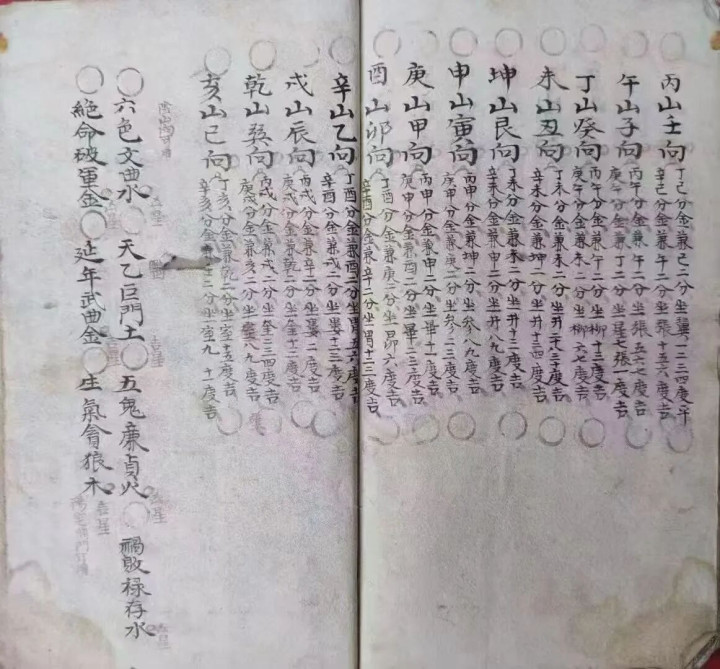 丙山壬向
丁巳分金兼巳二分坐翼一二三四度平
辛巳分金兼午二分坐張十五六度吉
午山子向
丙午分金兼午二分坐張五六七度吉
庚午分金兼丁二分坐星七張一度吉
丁山癸向
丙午分金兼午二分坐柳十三度吉
庚午分金兼未二分坐柳六七度吉
未山丑向
丁未分金兼丁二分坐井二十三度吉
辛未分金兼坤二分坐井十四度吉
坤山艮向
丁未分金兼未二分坐井十三度吉
辛未分金兼申二分坐井八九度吉
申山寅向
丙申分金兼坤二分坐參八九度吉
庚申分金兼庚二分坐參二三度吉
庚山甲向
丙申分金兼申二分坐觜十一度吉
庚申分金兼酉二分坐畢二三度吉
酉山卯向
丁酉分金兼庚二分坐昴六度吉
辛酉分金兼辛二分坐胃十三度吉
辛山乙向
丁酉分金兼酉二分坐胃五六度吉
辛酉分金兼戌二分坐婁十二度吉
戌山辰向
丙戌分金兼辛二分坐婁二度吉
庚戌分金兼乾二分坐奎十三度吉
乾山巽向
丙戌分金兼戌二分坐奎三四度吉
庚戌分金兼亥二分坐壁八九度吉
亥山巳向
丁亥分金兼乾二分坐室十五度吉
辛亥分金兼壬二分坐室九十一度吉
六色文曲水 天乙巨門土 五鬼廉貞火 禍敗祿存水
絕命破軍金 延年武曲金 生氣貪狼木